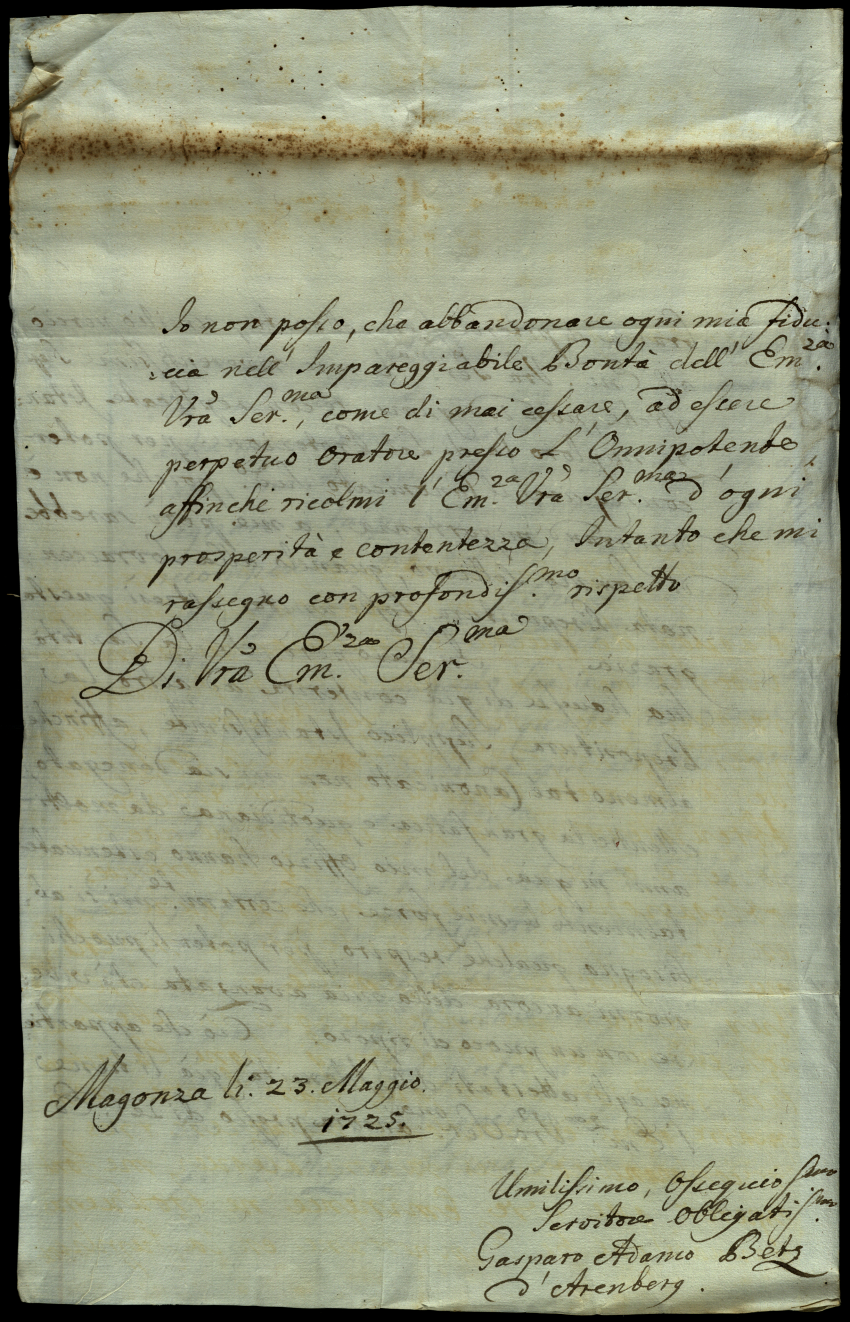 Io non posso, che abbandonare ogni mia fidu:
:cia nell' Impareggiabile Bontà dell' Em.za
Vra Ser.ma, come di mai cessare, ad essere
perpetuo Oratore presso L'Onnipotente
affinche ricolmi l'Em.za Vra Ser.ma d'ogni
prosperità e contentezza, Intanto che mi
rassegno con profondiss.mo rispetto
Di Vra Em.za Ser.ma
Magonza li. 23. Maggio.
1725.
Umilissimo, Ossequiosissmo
Servitore Obligatissmo.
Gasparo Adamo Betz
d'Arenberg.